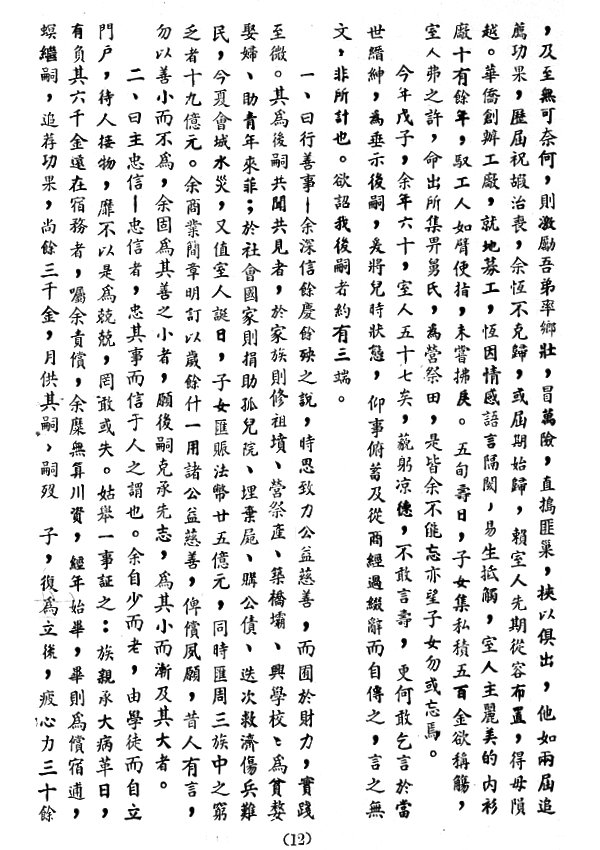 ，及至無可奈何，則激勵吾弟率鄉壯，冒萬險，直搗匪巢，挾以俱出，他如兩屆追
薦功果，歷屆祝嘏治喪，余恆不克歸，或屆期始歸，賴室人先期從容布置，得毋隕
越。華僑創辦工廠，就地募工，恆因情感語言隔閡，易生抵觸，室人主麗美的內衫
廠十有餘年，馭工人如臂使指，未嘗拂戾。五旬壽日，子女集私積五百金欲稱觴，
室人弗之許，命出所集畀舅氏，為營祭田，是皆余不能忘亦望子女勿或忘焉。
今年戊子，余年六十，室人五十七矣，藐躬凉德，不敢言壽，更何敢乞言於當
世縉紳，為垂示後嗣，爰將兒時狀態，仰事俯蓄及從商經過綴辭而自傳之，言之無
文，非所計也。欲詔我後嗣者約有三端。
一、曰行善事－余深信餘慶餘殃之說，時思致力公益慈善，而囿於財力，實踐
至微。其為後嗣共聞共見者，於家族則修祖墳、營祭產、築橋壩、興學校、為貧婺
娶婦、助青年來菲；於社會國家則捐助孤兒院、埋棄屍、購公債、迭次救濟傷兵難
民，今夏會城水災，又值室人誕日，子女匯賑法幣廿五億元，同時匯周三族中之窮
乏者十九億元。余商業簡章明訂以歲餘什一用諸公益慈善，俾償夙願，昔人有言，
勿以善小而不為，余固為其善之小者，願後嗣克承先志，為其小而漸及其大者。
二、曰主忠信－忠信者，忠其事而信于人之謂也。余自少而老，由學徒而自立
門戶，待人接物，靡不以是為兢兢，罔敢或失。姑舉一事証之：族親承大病革日，
有負其六千金遠在宿務者，囑余責償，余糜無算川資，經年始畢，畢則為償宿逋，
螟繼嗣，追荐功果，尚餘三千金，月供其嗣，嗣歿 子，復為立後，疲心力三十餘
(12)